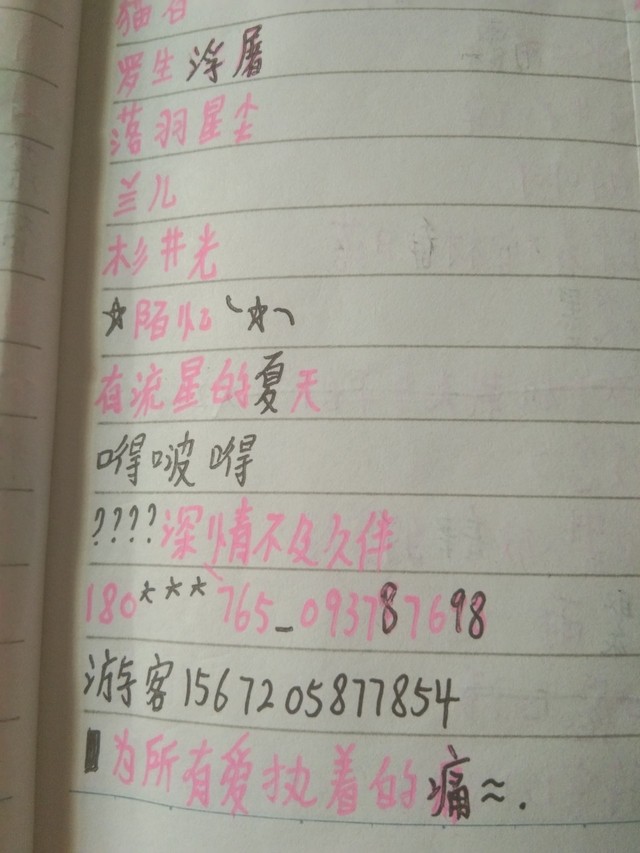 猫者
罗生浮屠
落羽星尘
兰儿
杉井光
☆陌灿ヽ☆ヽ
有流星的夏天
嘚啵嘚
????深情不及久伴
180***765_093787698
游客1567205877854
为所有爱执着的痛≈.